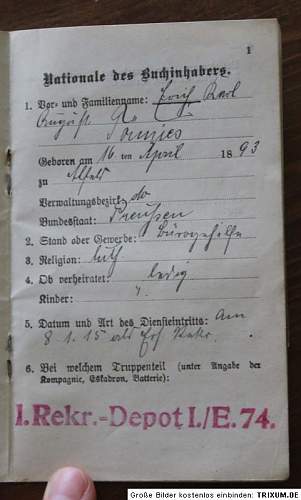 1
Nationale des Buchinhabers.
1. Vor- und Familienname: Erich Karl
August
Geboren am 16 ten April 1893
zu Alfeld
Verwaltungsbezirk: do
Bundesstaat: Preußen
2. Stand oder Gewerbe: Bürogehilfe
3. Religion: luth
4. Ob verheiratet: ledig
Kinder:
5. Datum und Art des Diensteintritts: Am
8 1. 15 als Ers Rekr.
6. Bei welchem Truppenteil (unter Angabe der
Kompagnie, Eskadron, Batterie):
I. Rekr.-Depot I./E. 74.
Große Bilder kostenlos einbinden: TRIXUM.DE